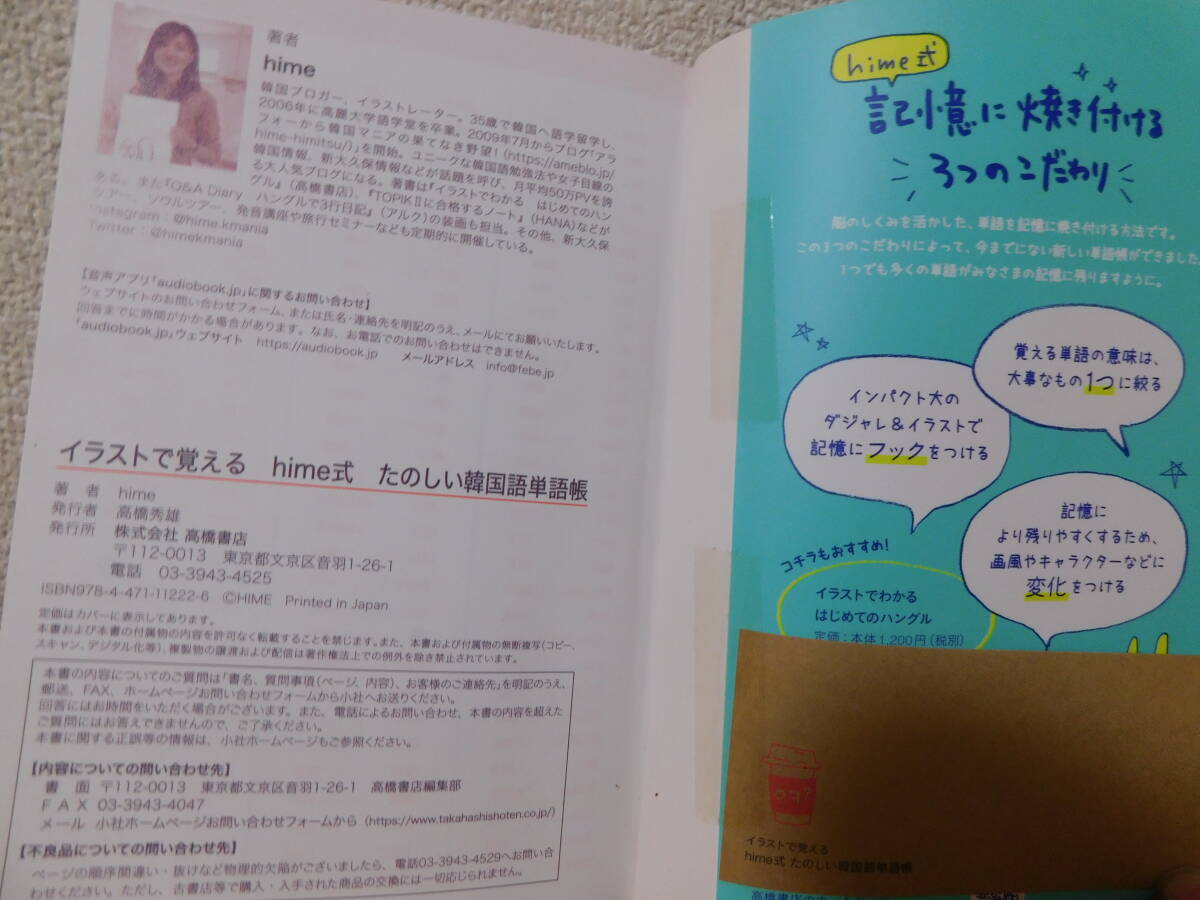 著者
hime
韓国ブロガー、イラストレーター。35歳で韓国へ語学留学し、
2006年に高麗大学語学堂を卒業。2009年7月からブログ「アラ
フォーから韓国マニアの果てなき野望!(https://ameblo.jp/
hime-himitsu/)」を開始。ユニークな韓国語勉強法や女子目線の
韓国情報、新大久保情報などが話題を呼び、月平均50万PVを誇
る大人気ブログになる。著書は『イラストでわかる はじめてのハン
グル』(高橋書店)、『TOPIKⅡに合格するノート』(HANA)などが
ある。また『Q&A Diary ハングルで3行日記』(アルク)の装画も担当。その他、新大久保
ツアー、ソウルツアー、発音講座や旅行セミナーなども定期的に開催している。
Instagram:@hime.kmania
Twitter:@himekmania
【音声アプリ「audiobook.jp」に関するお問い合わせ】
ウェブサイトのお問い合わせフォーム、または氏名・連絡先を明記のうえ、メールにてお願いいたします。
回答までに時間がかかる場合があります。なお、お電話でのお問い合わせはできません。
「audiobook.jp」ウェブサイト https://audiobook.jp メールアドレス info@febe.jp
イラストで覚える hime式 たのしい韓国語単語帳
著 者 hime
発行者 高橋秀雄
発行所 株式会社 高橋書店
〒112-0013 東京都文京区音羽1-26-1
電話 03-3943-4525
ISBN978-4-471-11222-6 ©HIME Printed in Japan
定価はカバーに表示してあります。
本書および本書の付属物の内容を許可なく転載することを禁じます。また、本書および付属物の無断複写(コピー、
スキャン、デジタル化等)、複製物の譲渡および配信は著作権法上での例外を除き禁止されています。
本書の内容についてのご質問は「書名、質問事項(ページ、内容)、お客様のご連絡先」を明記のうえ、
郵送、FAX、ホームページお問い合わせフォームから小社へお送りください。
回答にはお時間をいただく場合がございます。また、電話によるお問い合わせ、本書の内容を超えた
ご質問にはお答えできませんので、ご了承ください。
本書に関する正誤等の情報は、小社ホームページもご参照ください。
【内容についての問い合わせ先】
書 面 〒112-0013 東京都文京区音羽1-26-1 高橋書店編集部
FAX 03-3943-4047
メール 小社ホームページお問い合わせフォームから (https://www.takahashishoten.co.jp/)
【不良品についての問い合わせ先】
ページの順序間違い・抜けなど物理的欠陥がございましたら、電話03-3943-4529へお問い合
わせください。ただし、古書店等で購入・入手された商品の交換には一切応じられません。
hime式
記憶に焼き付ける
3つのこだわり
脳のしくみを活かした、単語を記憶に焼き付ける方法です。
この3つのこだわりによって、今までにない新しい単語帳ができました
1つでも多くの単語がみなさまの記憶に残りますように。
覚える単語の意味は、
大事なもの1つに絞る
インパクト大の
ダジャレ&イラストで
記憶にフックをつける
記憶に
より残りやすくするため、
画風やキャラクターなどに
変化をつける
コチラもおすすめ!
イラストでわかる
はじめてのハングル
定価:本体1,200円(税別)
イラストで覚える
hime式 たのしい韓国語単語帳